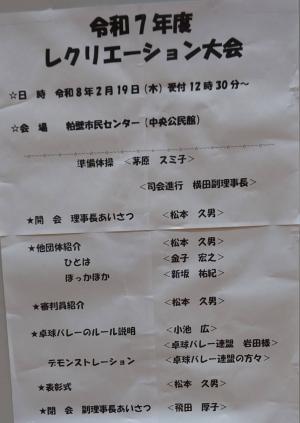 令和７年度
レクリエーション大会
☆日　時　令和８年２月１９日(木) 受付１２時３０分～
☆会　場　粕壁市民センター (中央公民館)
準備体操　＜茅原　スミ子＞
＜司会進行　横田副理事長＞
★開　会　理事長あいさつ　＜松本　久男＞
★他団体紹介　＜松本　久男＞
ひとは　＜金子　宏之＞
ほっかほか　＜新坂　祐紀＞
★審判員紹介　＜松本　久男＞
★卓球バレーのルール説明　＜小池　広＞
＜卓球バレー連盟　岩田様＞
デモンストレーション　＜卓球バレー連盟の方々＞
★表彰式　＜松本　久男＞
★閉　会　副理事長あいさつ　＜飛田　厚子＞